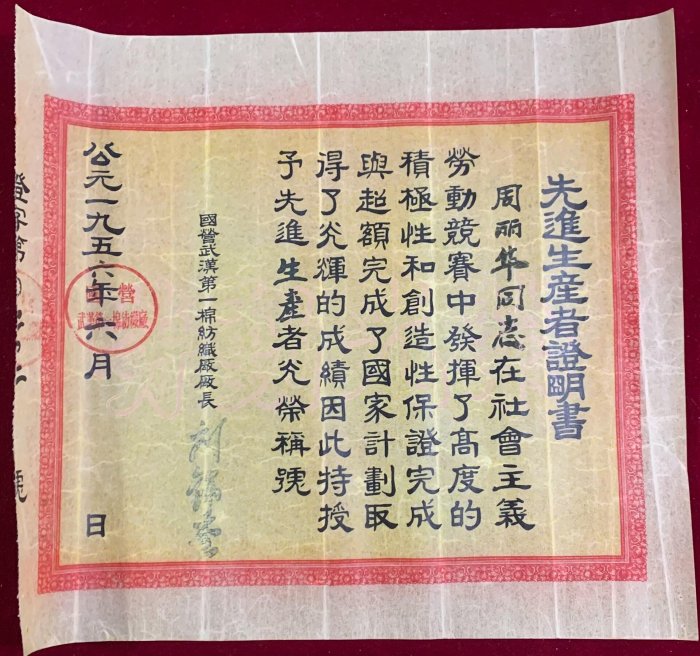 先進生產者證明書
周丽华同志在社會主義
勞動競賽中發揮了高度的
積極性和創造性保證完成
與超額完成了國家計劃取
得了光輝的成績因此特授
予先進生產者光榮稱號
國營武漢第一棉紡織廠廠長
公元一九五六年六月 日
國營
武漢第一棉紡織廠
證字第 號